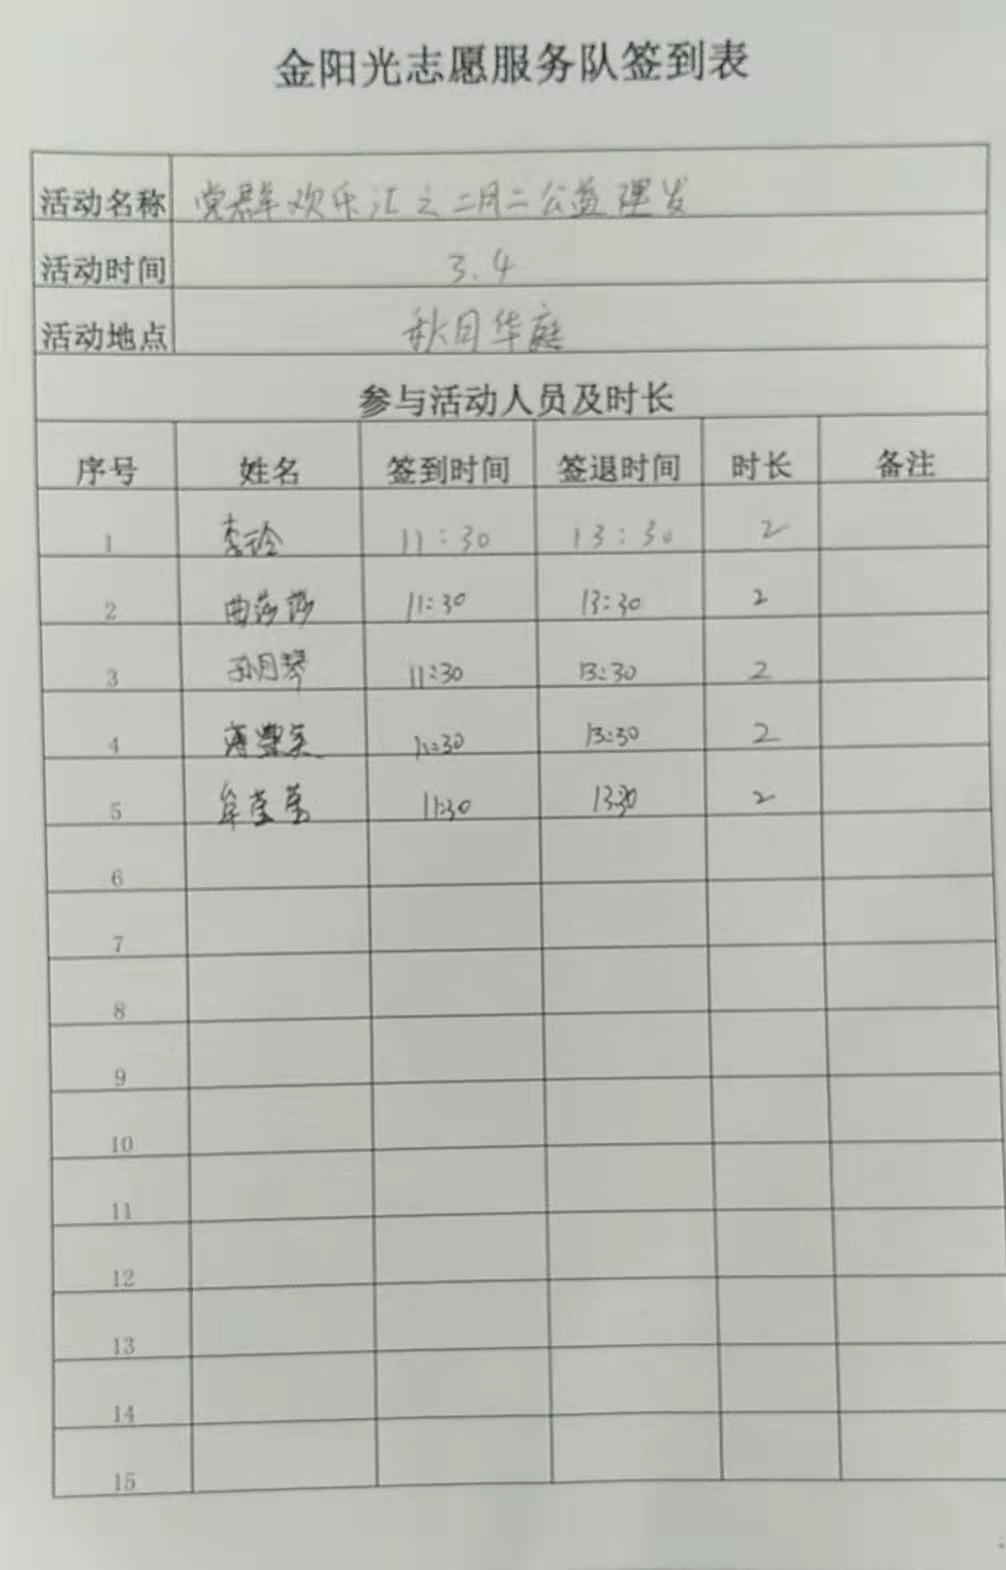 金阳光志愿服务队签到表
活动名称 党群欢乐汇之二月二公益理发
活动时间 3.4
活动地点 秋月华庭
参与活动人员及时长
序号 姓名 签到时间 签退时间 时长 备注
1 李玲 11:30 13:30 2
2 曲莎莎 11:30 13:30 2
3 孙月琴 11:30 13:30 2
4 11:30 13:30 2
5 牟莹莹 11:30 13:30 2
6
7
8
9
10
11
12
13
14
15